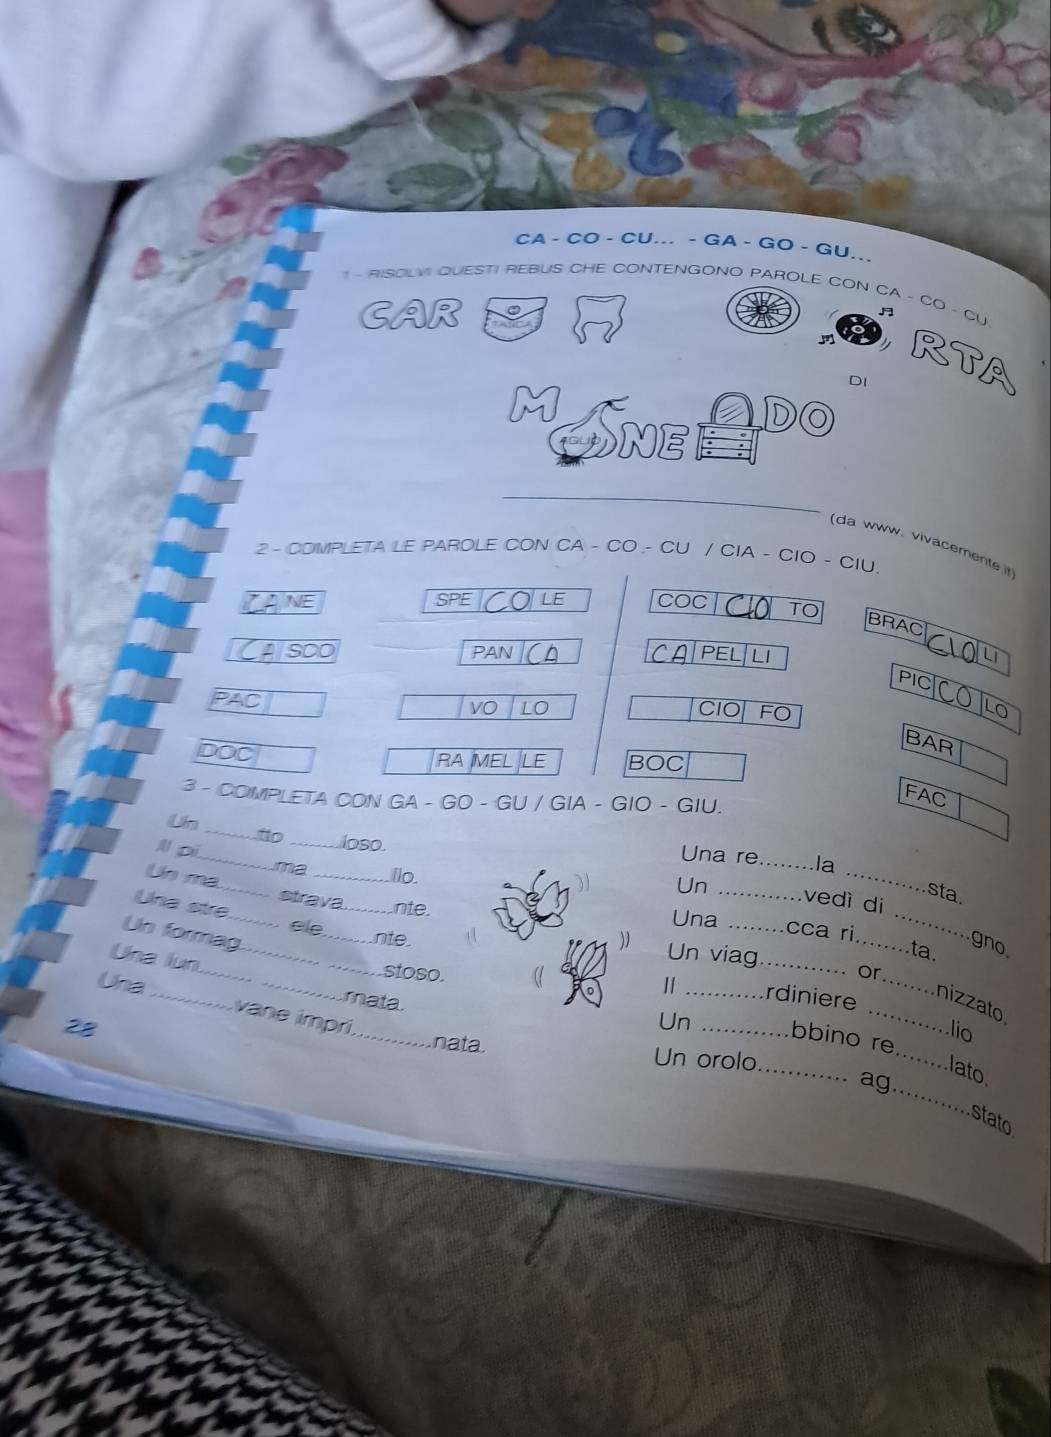 CA - CO - CU... - GA - GO - GU...
1 - RISOLVI QUESTI REBUS CHE CONTENGONO PAROLE CON CA - CO - CU.
CAR TASCA RTA
DI
M AGLIO NE DO
(da www. vivacemente.it)
2 - COMPLETA LE PAROLE CON CA - CO - CU / CIA - CIO - CIU.
CA NE SPE CO LE COC CIO TO BRAC CIO LI
CA SCO PAN CA CA PEL LI PIC CO LO
PAC VO LO CIO FO BAR
DOC RA MEL LE BOC FAC
3 - COMPLETA CON GA - GO - GU / GIA - GIO - GIU.
Un ........tto ........loso.
Il pi............ma ............llo.
Un ma........ strava........nte.
Una stre........ ele........nte.
Un formag............ ........stoso.
Una lun........ ............rnata.
Una ............vane impri............nata.
Una re........la ............sta.
Un ............vedì di ............gno.
Una ........cca ri........ta.
Un viag............ or........nizzato.
Il ............rdiniere ............lio
Un ............bbino re........lato.
Un orolo............ ag............stato.
28